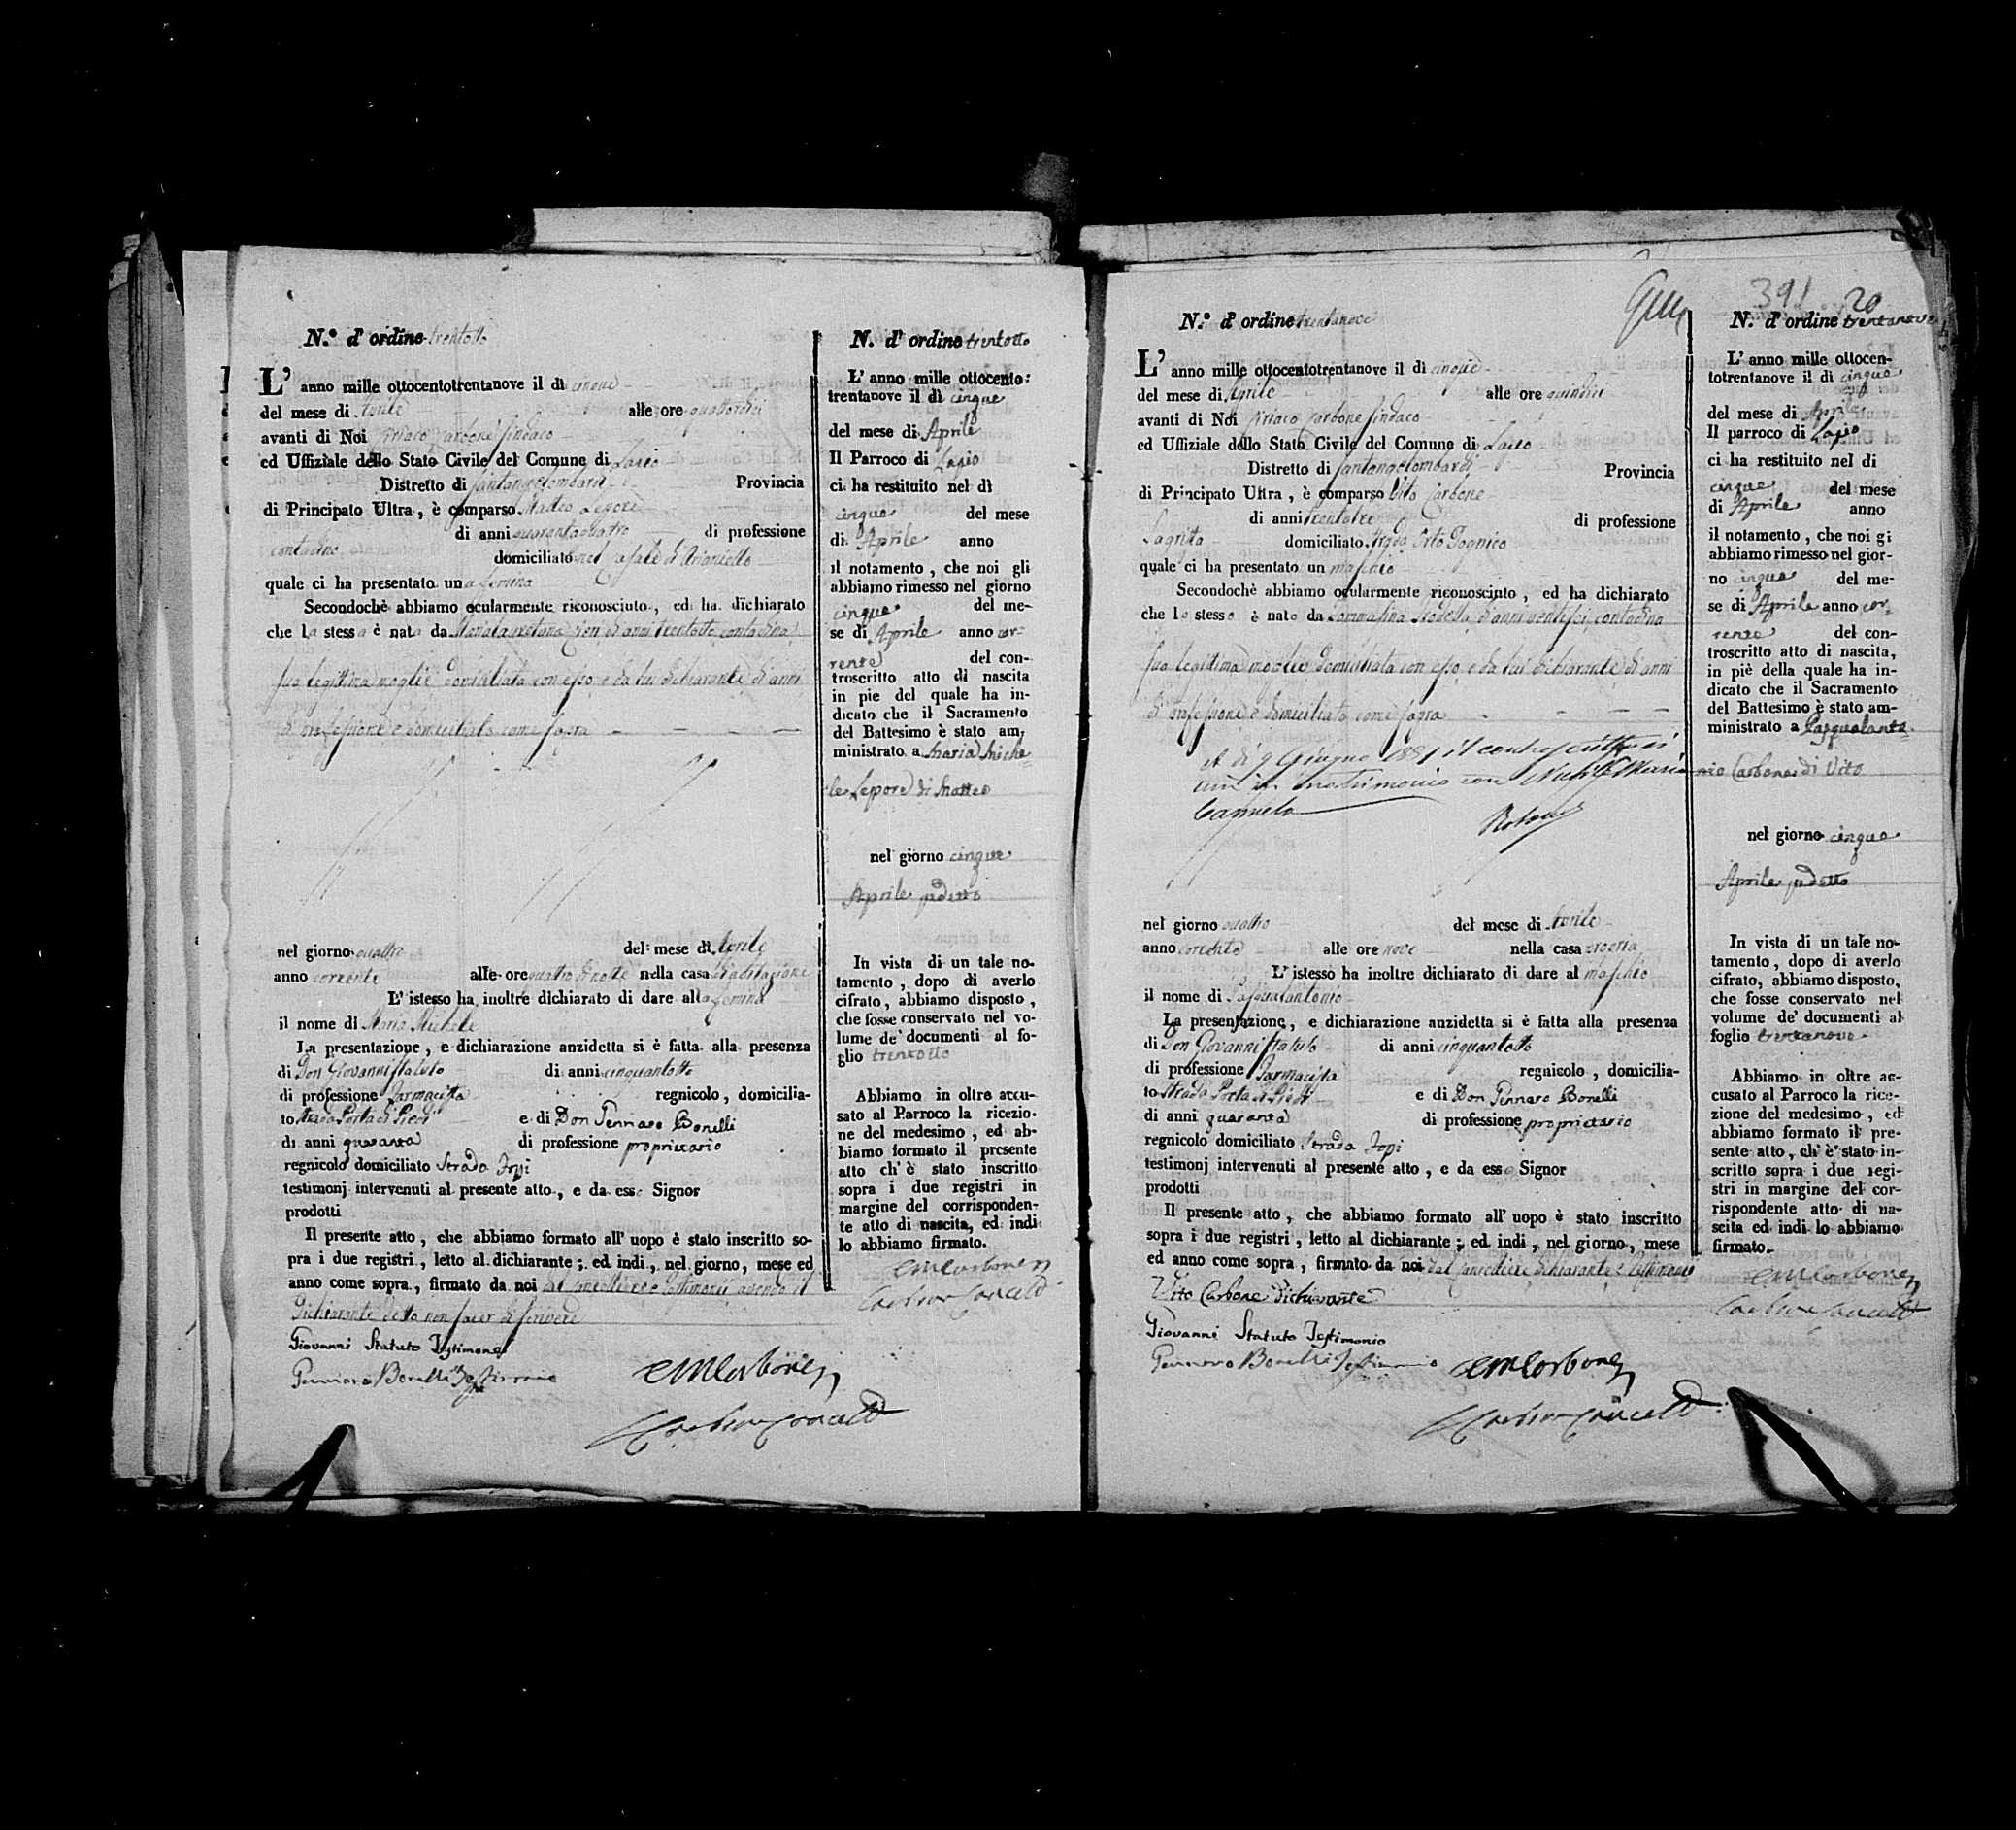 N.º d' ordine trentotto
L' anno mille ottocentotrentanove il dì cinque
del mese di Aprile alle ore quattordici
avanti di Noi Ciriaco Carbone Sindaco
ed Uffiziale dello Stato Civile del Comune di Lapio
Distretto di Santangelombardi Provincia
di Principato Ultra, è comparso Matteo Lepore
di anni quarantaquattro di professione
contadino domiciliato nel Casale d'Arianiello
quale ci ha presentato una femina
Secondochè abbiamo ocularmente riconosciuto, ed ha dichiarato
che la stessa è nata da di anni trentotto contadina
sua legittima moglie domiciliata con esso e da lui dichiarante di anni
di professione e domiciliato come sopra
nel giorno quattro del mese di Aprile
anno corrente alle ore quattro di notte nella casa d'abitazione
L' istesso ha inoltre dichiarato di dare alla femina
il nome di Maria Michele
La presentazione, e dichiarazione anzidetta si è fatta alla presenza
di Don Giovanni Statuto di anni cinquantotto
di professione Farmacista regnicolo, domicilia-
to Strada Porta di Piedi e di Don Gennaro Bonelli
di anni quaranta di professione proprietario
regnicolo domiciliato Strada Fopi
testimonj intervenuti al presente atto, e da esso Signor
prodotti
Il presente atto, che abbiamo formato all' uopo è stato inscritto so-
pra i due registri, letto al dichiarante; ed indi, nel giorno, mese ed
anno come sopra, firmato da noi dal cancelliere e testimonii avendo il
Dichiarante detto non saper di scrivere
Giovanni Statuto Testimone
Gennaro Bonelli Testimonio
CM Carbone
Carbone Cancell
N. d' ordine trentotto
L' anno mille ottocento:
trentanove il dì cinque
del mese di Aprile
Il Parroco di Lapio
ci ha restituito nel dì
cinque del mese
di Aprile anno
il notamento, che noi gli
abbiamo rimesso nel giorno
cinque del me-
se di Aprile anno cor-
rente del con-
troscritto atto di nascita
in pie del quale ha in-
dicato che il Sacramento
del Battesimo è stato am-
ministrato a Maria Miche-
le Lepore di Matteo
nel giorno cinque
Aprile pdetto
In vista di un tale no-
tamento, dopo di averlo
cifrato, abbiamo disposto,
che fosse conservato nel vo-
lume de' documenti al fo-
glio trentotto
Abbiamo in oltre accu-
sato al Parroco la ricezio-
ne del medesimo, ed ab-
biamo formato il presente
atto ch' è stato inscritto
sopra i due registri in
margine del corrisponden-
te atto di nascita, ed indi
lo abbiamo firmato.
CM Carbone
Carbone Cancell
391 20
N.º d' ordine trentanove
L' anno mille ottocentotrentanove il dì cinque
del mese di Aprile alle ore quindici
avanti di Noi Ciriaco Carbone Sindaco
ed Uffiziale dello Stato Civile del Comune di Lapio
Distretto di Santangelombardi Provincia
di Principato Ultra, è comparso Vito Carbone
di anni trentatre di professione
Sagrista domiciliato Strada Orto
quale ci ha presentato un maschio
Secondochè abbiamo ocularmente riconosciuto, ed ha dichiarato
che lo stesso è nato da Tommasina di anni ventisei contadina
sua legittima moglie domiciliata con esso e da lui dichiarante di anni
di professione e domiciliato come sopra
A dì 9 Giugno 1881 il controscritto si
unì in matrimonio con Maria
Carmela
nel giorno quattro del mese di Aprile
anno corrente alle ore nove nella casa propria
L' istesso ha inoltre dichiarato di dare al maschio
il nome di Pasqualantonio
La presentazione, e dichiarazione anzidetta si è fatta alla presenza
di Don Giovanni Statuto di anni cinquantotto
di professione Farmacista regnicolo, domicilia-
to Strada Porta di Piedi e di Don Gennaro Bonelli
di anni quaranta di professione proprietario
regnicolo domiciliato Strada Fopi
testimonj intervenuti al presente atto, e da esso Signor
prodotti
Il presente atto, che abbiamo formato all' uopo è stato inscritto
sopra i due registri, letto al dichiarante; ed indi, nel giorno, mese
ed anno come sopra, firmato da noi dal cancelliere dichiarante e testimonii
Vito Carbone dichiarante
Giovanni Statuto Testimonio
Gennaro Bonelli Testimonio
CM Carbone
Carbone Cancell
N. d' ordine trentanove
L' anno mille ottocen-
totrentanove il dì cinque
del mese di Aprile
Il parroco di Lapio
ci ha restituito nel di
cinque del mese
di Aprile anno
il notamento, che noi gi
abbiamo rimesso nel gior-
no cinque del me-
se di Aprile anno cor-
rente del con-
troscritto atto di nascita,
in piè della quale ha in-
dicato che il Sacramento
del Battesimo è stato am-
ministrato a Pasqualanto-
nio Carbone di Vito
nel giorno cinque
Aprile pdetto
In vista di un tale no-
tamento, dopo di averlo
cifrato, abbiamo disposto,
che fosse conservato nel
volume de' documenti al
foglio trentanove
Abbiamo in oltre ac-
cusato al Parroco la rice-
zione del medesimo, ed
abbiamo formato il pre-
sente atto, ch' è stato in-
scritto sopra i due regi-
stri in margine del cor-
rispondente atto di na-
scita ed indi lo abbiamo
firmato.
CM Carbone
Carbone Cancell